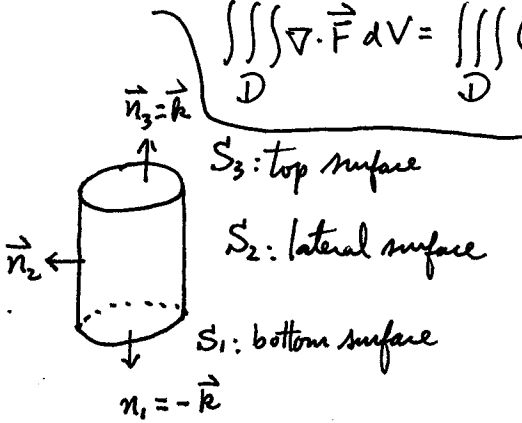 ∭ ∇·F⃗ dV = ∭ (
D D
n⃗₃=k⃗
S₃: top surface
n⃗₂
S₂: lateral surface
S₁: bottom surface
n₁ = -k⃗